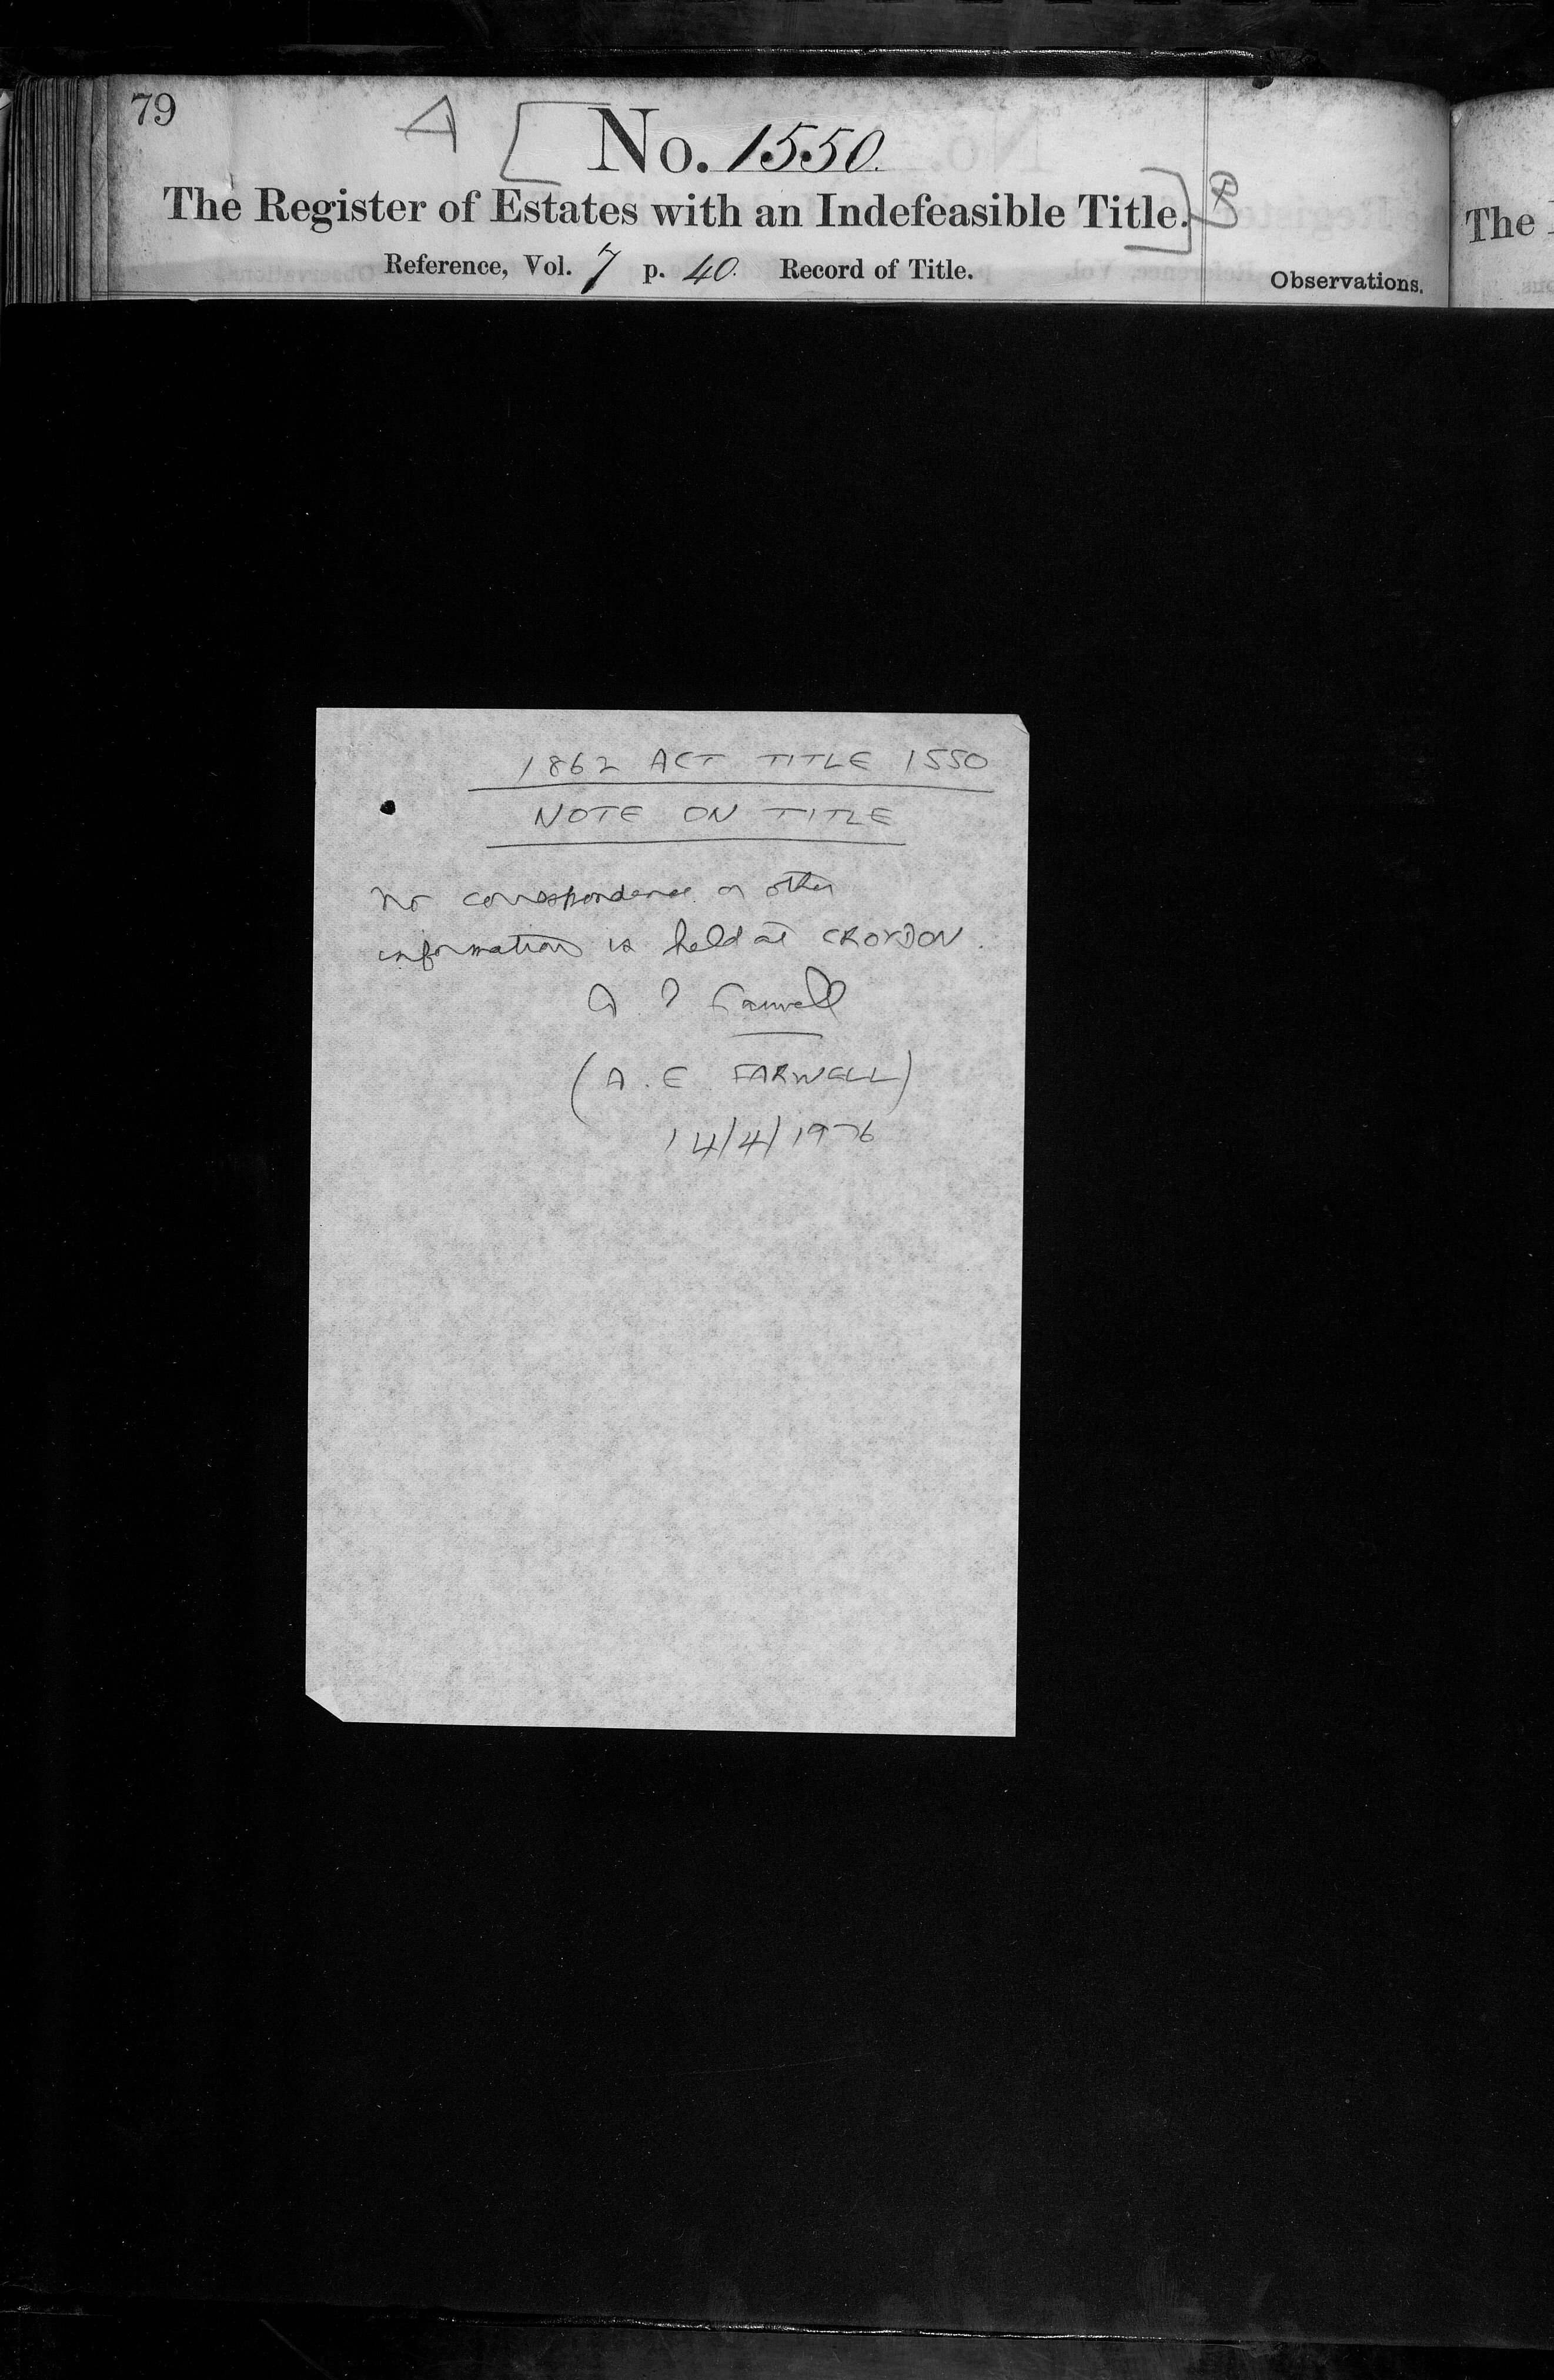 79
A
No. 1550.
The Register of Estates with an Indefeasible Title.
B
Reference, Vol. 7 p. 40. Record of Title.
Observations.
The
1862 ACT TITLE 1550
NOTE ON TITLE
No correspondence or other
information is held at CROYDON.
A E Farwell
(A. E. FARWELL)
14/4/1976